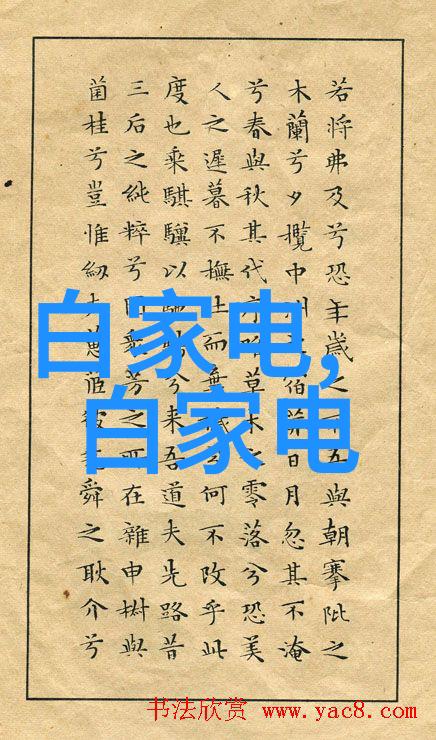 若将弗及兮恐年歲之不五與朝搴阰之
木蘭兮夕攬中洲之宿莽日月忽其不淹
兮春與秋其代序惟草木之零落兮恐美
人之遲暮不撫壯而棄穢兮何不改乎此
度也乘騏驥以馳騁兮来吾道夫先路昔
三后之純粹兮固衆芳之所在雜申椒與
菌桂兮豈惟紉夫蕙茝彼堯舜之耿介兮
白家电,
白家电
书法欣赏 www.yac8.com